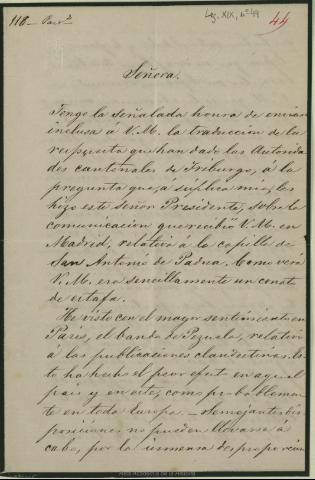 118 - Parr.2
Leg. XIX, nº 49
44
Señora.
Tengo la señalada honra de enviar
inclusa á V. M. la traduccion de la
respuesta que han dado las Autorida
des cantonales de Friburgo, á la
pregunta que, á súplica mia, les
hizo este señor Presidente, sobre la
comunicacion que recibió V. M. en
Madrid, relativa á la capilla de
San Antonio de Padua. Como verá
V. M. era sencillamente un conato
de estafa.
He visto con el mayor sentimiento en
Paris, el bando de Pezuela, relativo
á las publicaciones clandestinas. Es
to ha hecho el peor efecto en aquel
pais y en este, como probablemen
te en toda Europa. - Semejantes dis
posiciones no pueden llevarse á
cabo, por la inmensa desproporcion
Real Academia de la Historia